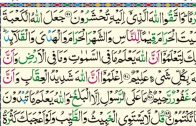 وَاتَّقُوا اللّٰهَ الَّذِیْۤ اِلَیْهِ تُحْشَرُوْنَ ۝ جَعَلَ اللّٰهُ الْكَعْبَةَ
الْبَیْتَ الْحَرَامَ قِیٰمًا لِّلنَّاسِ وَالشَّهْرَ الْحَرَامَ وَالْهَدْیَ وَالْقَلَآىِٕدَ
ذٰلِكَ لِتَعْلَمُوْۤا اَنَّ اللّٰهَ یَعْلَمُ مَا فِی السَّمٰوٰتِ وَمَا فِی الْاَرْضِ وَاَنَّ
اللّٰهَ بِكُلِّ شَیْءٍ عَلِیْمٌ ۝ اِعْلَمُوْۤا اَنَّ اللّٰهَ شَدِیْدُ الْعِقَابِ وَاَنَّ
اللّٰهَ غَفُوْرٌ رَّحِیْمٌ ۝ مَا عَلَی الرَّسُوْلِ اِلَّا الْبَلٰغُ وَاللّٰهُ یَعْلَمُ مَا تُبْدُوْنَ
وَمَا تَكْتُمُوْنَ ۝ قُلْ لَّا یَسْتَوِی الْخَبِیْثُ وَالطَّیِّبُ وَلَوْ اَعْجَبَكَ كَثْرَةُ